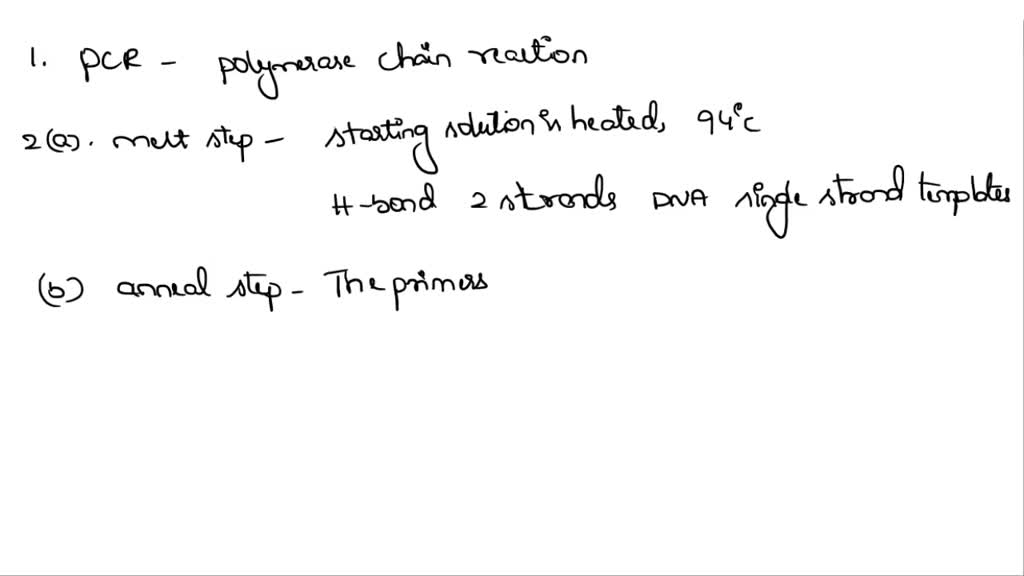 1. PCR - polymerase chain reaction
2(a). melt step - starting solution is heated, 94°C
H-bond 2 strands DNA single strand templates
(b) anneal step - The primers